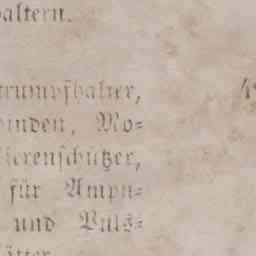 altern.
trumpfhalter,
binden, Mo=
ierenschützer,
für Ampu=
und Puls=